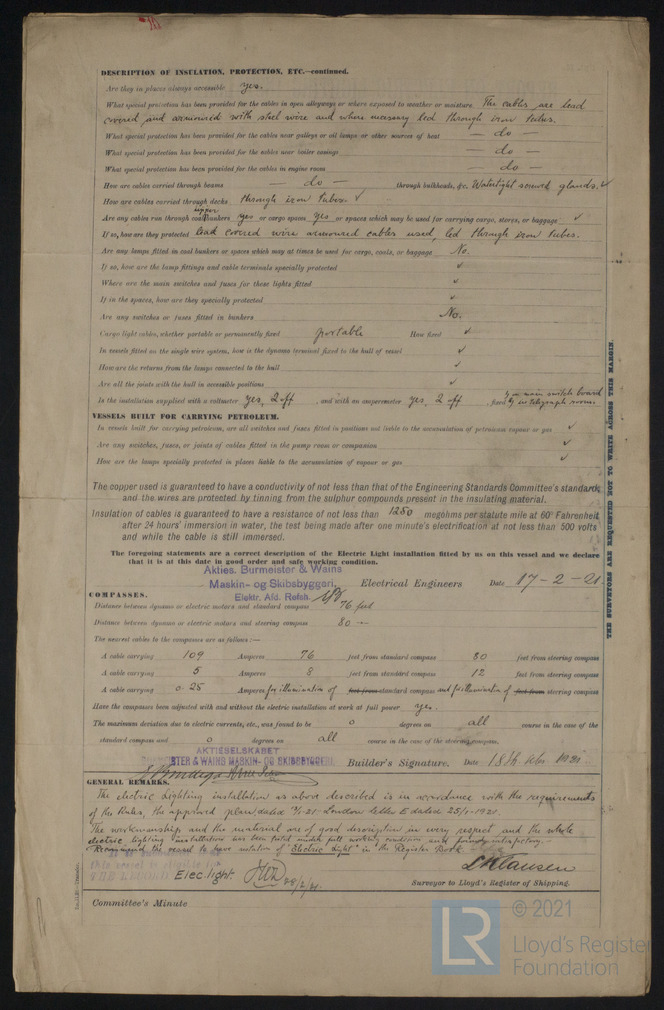 DESCRIPTION OF INSULATION, PROTECTION, ETC.—continued.
Are they in places always accessible yes.
What special protection has been provided for the cables in open alleyways or where exposed to weather or moisture The cables are lead
covered and armoured with steel wire and where necessary led through iron tubes.
What special protection has been provided for the cables near galleys or oil lamps or other sources of heat — do —
What special protection has been provided for the cables near boiler casings — do —
What special protection has been provided for the cables in engine room — do —
How are cables carried through beams — do — through bulkheads, &c. Watertight screwed glands. ✓
How are cables carried through decks through iron tubes. ✓
Are any cables run through coal bunkers yes or cargo spaces yes or spaces which may be used for carrying cargo, stores, or baggage ✓
If so, how are they protected lead covered wire armoured cables used, led through iron tubes.
Are any lamps fitted in coal bunkers or spaces which may at times be used for cargo, coals, or baggage No.
If so, how are the lamp fittings and cable terminals specially protected ✓
Where are the main switches and fuses for these lights fitted ✓
If in the spaces, how are they specially protected ✓
Are any switches or fuses fitted in bunkers No.
Cargo light cables, whether portable or permanently fixed portable How fixed ✓
In vessels fitted on the single wire system, how is the dynamo terminal fixed to the hull of vessel ✓
How are the returns from the lamps connected to the hull ✓
Are all the joints with the hull in accessible positions ✓
Is the installation supplied with a voltmeter yes, 2 off , and with an amperemeter yes, 2 off , fixed 1/ in main switch board
2/ in telegraph room.
VESSELS BUILT FOR CARRYING PETROLEUM.
In vessels built for carrying petroleum, are all switches and fuses fitted in positions not liable to the accumulation of petroleum vapour or gas ✓
Are any switches, fuses, or joints of cables fitted in the pump room or companion ✓
How are the lamps specially protected in places liable to the accumulation of vapour or gas ✓
The copper used is guaranteed to have a conductivity of not less than that of the Engineering Standards Committee's standard,
and the wires are protected by tinning from the sulphur compounds present in the insulating material.
Insulation of cables is guaranteed to have a resistance of not less than 1250 megohms per statute mile at 60° Fahrenheit
after 24 hours' immersion in water, the test being made after one minute's electrification at not less than 500 volts
and while the cable is still immersed.
The foregoing statements are a correct description of the Electric Light installation fitted by us on this vessel and we declare
that it is at this date in good order and safe working condition.
Akties. Burmeister & Wains
Maskin- og Skibsbyggeri. Electrical Engineers Date 17-2-21.
Elektr. Afd. Refsh.
COMPASSES.
Distance between dynamo or electric motors and standard compass 76 feet
Distance between dynamo or electric motors and steering compass 80 —
The nearest cables to the compasses are as follows:—
A cable carrying 109 Amperes 76 feet from standard compass 80 feet from steering compass
A cable carrying 5 Amperes 8 feet from standard compass 12 feet from steering compass
A cable carrying 0.25 Amperes for illumination of feet from standard compass and for illumination of feet from steering compass
Have the compasses been adjusted with and without the electric installation at work at full power yes.
The maximum deviation due to electric currents, etc., was found to be 0 degrees on all course in the case of the
standard compass and 0 degrees on all course in the case of the steering compass.
AKTIESELSKABET
STER & WAINS MASKIN- OG SKIBSBYGGERI. Builder's Signature. Date 18th 1921
GENERAL REMARKS.
The electric Lighting installation as above described is in accordance with the requirements
of the Rules, the approved plan dated London letter E dated 25/1-1921.
The workmanship and the material are of good description in every respect and the whole
electric lighting installation has been tested under full working conditions and found satisfactory.—
Recommend the vessel to have notation of "Electric Light" in the Register Book.
this vessel is eligible for
THE RECORD Elec. light. 28/2/21.
Surveyor to Lloyd's Register of Shipping.
Committee's Minute
THE SURVEYORS ARE REQUESTED NOT TO WRITE ACROSS THIS MARGIN.
© 2021
LR
Lloyd's Register
Foundation